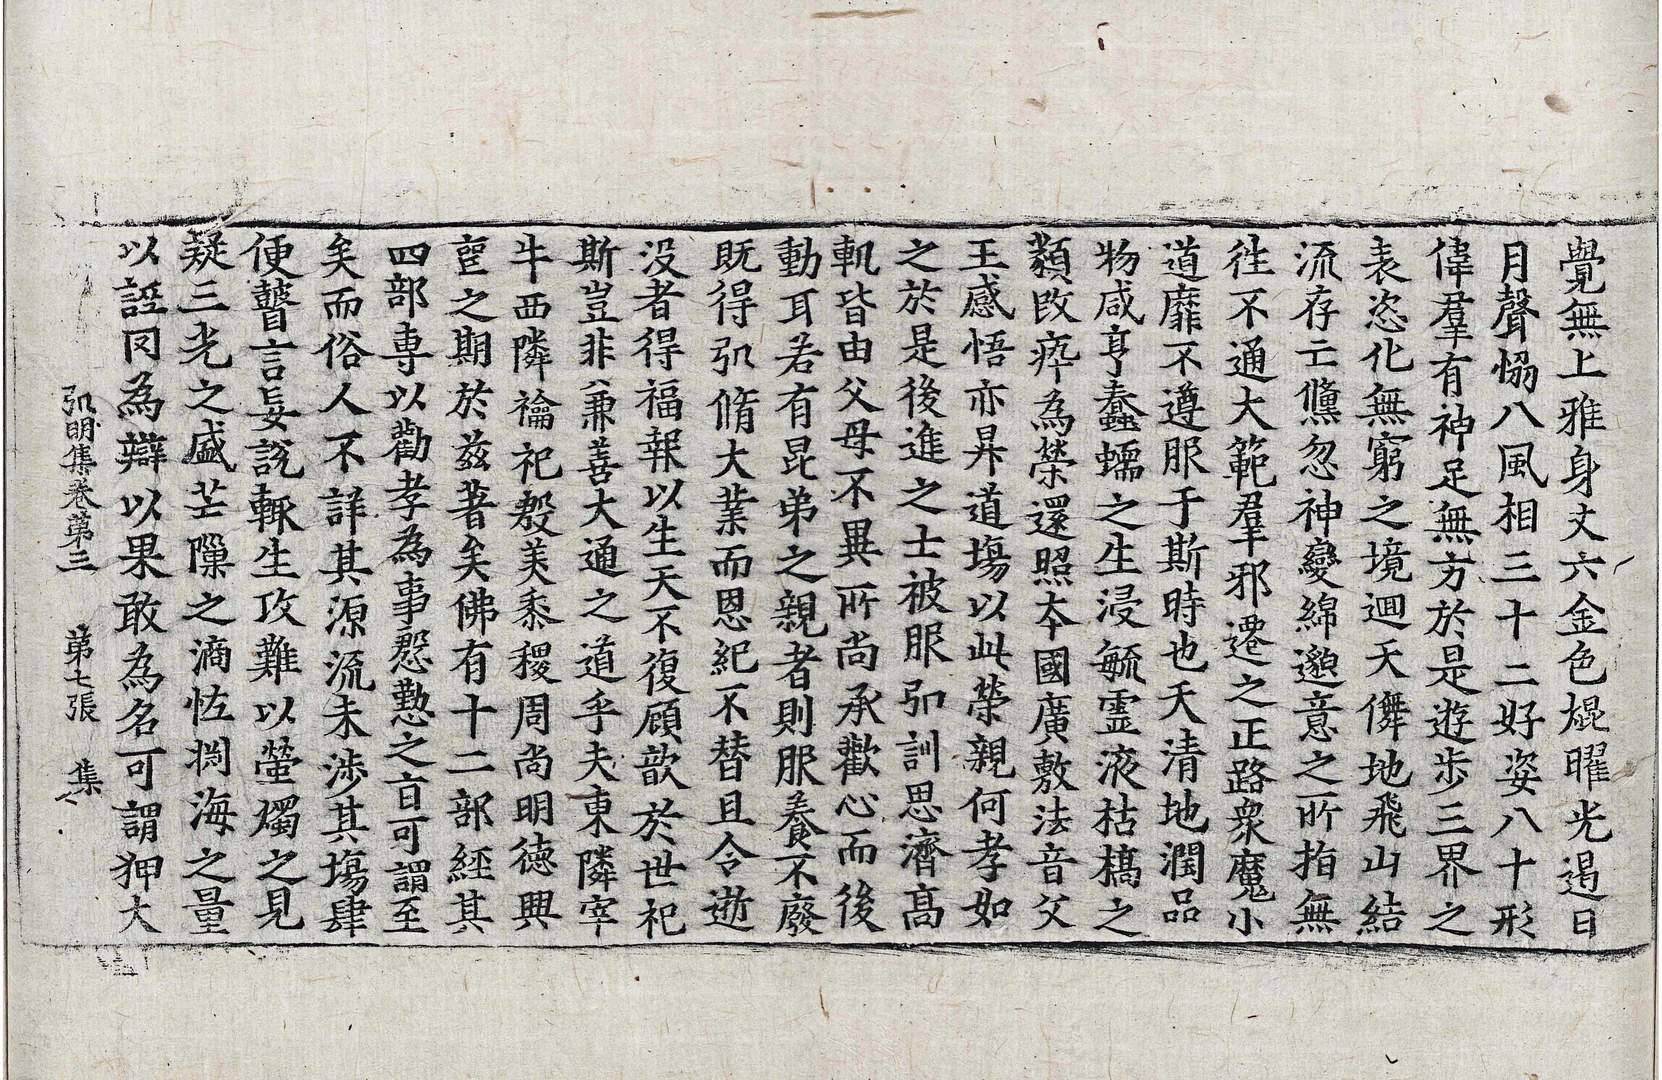 覺無上雅身丈六金色焜曜光遏日
月聲愶八風相三十二好姿八十形
偉羣有神足無方於是遊步三界之
表恣化無窮之境迴天儛地飛山結
流存亡儵忽神變綿邈意之所指無
往不通大範羣邪遷之正路衆魔小
道靡不遵服于斯時也天清地潤品
物咸亨蠢蠕之生浸毓靈液枯槁之
類改瘁為榮還照本國廣敷法音父
王感悟亦昇道場以此榮親何孝如
之於是後進之士被服弘訓思濟高
軌皆由父母不異所尚承歡心而後
動耳若有昆弟之親者則服養不廢
既得弘脩大業而恩紀不替且令逝
没者得福報以生天不復顧歆於世祀
斯豈非兼善大通之道乎夫東隣宰
牛西隣禴祀殷美黍稷周尚明德興
喪之期於兹著矣佛有十二部經其
四部專以勸孝為事慇懃之旨可謂至
矣而俗人不詳其源流未涉其場肆
便瞽言妄說輒生攻難以螢燭之見
疑三光之盛芒隟之滴恠淵海之量
以誣罔為辯以果敢為名可謂狎大
弘明集卷第三　第七張　集